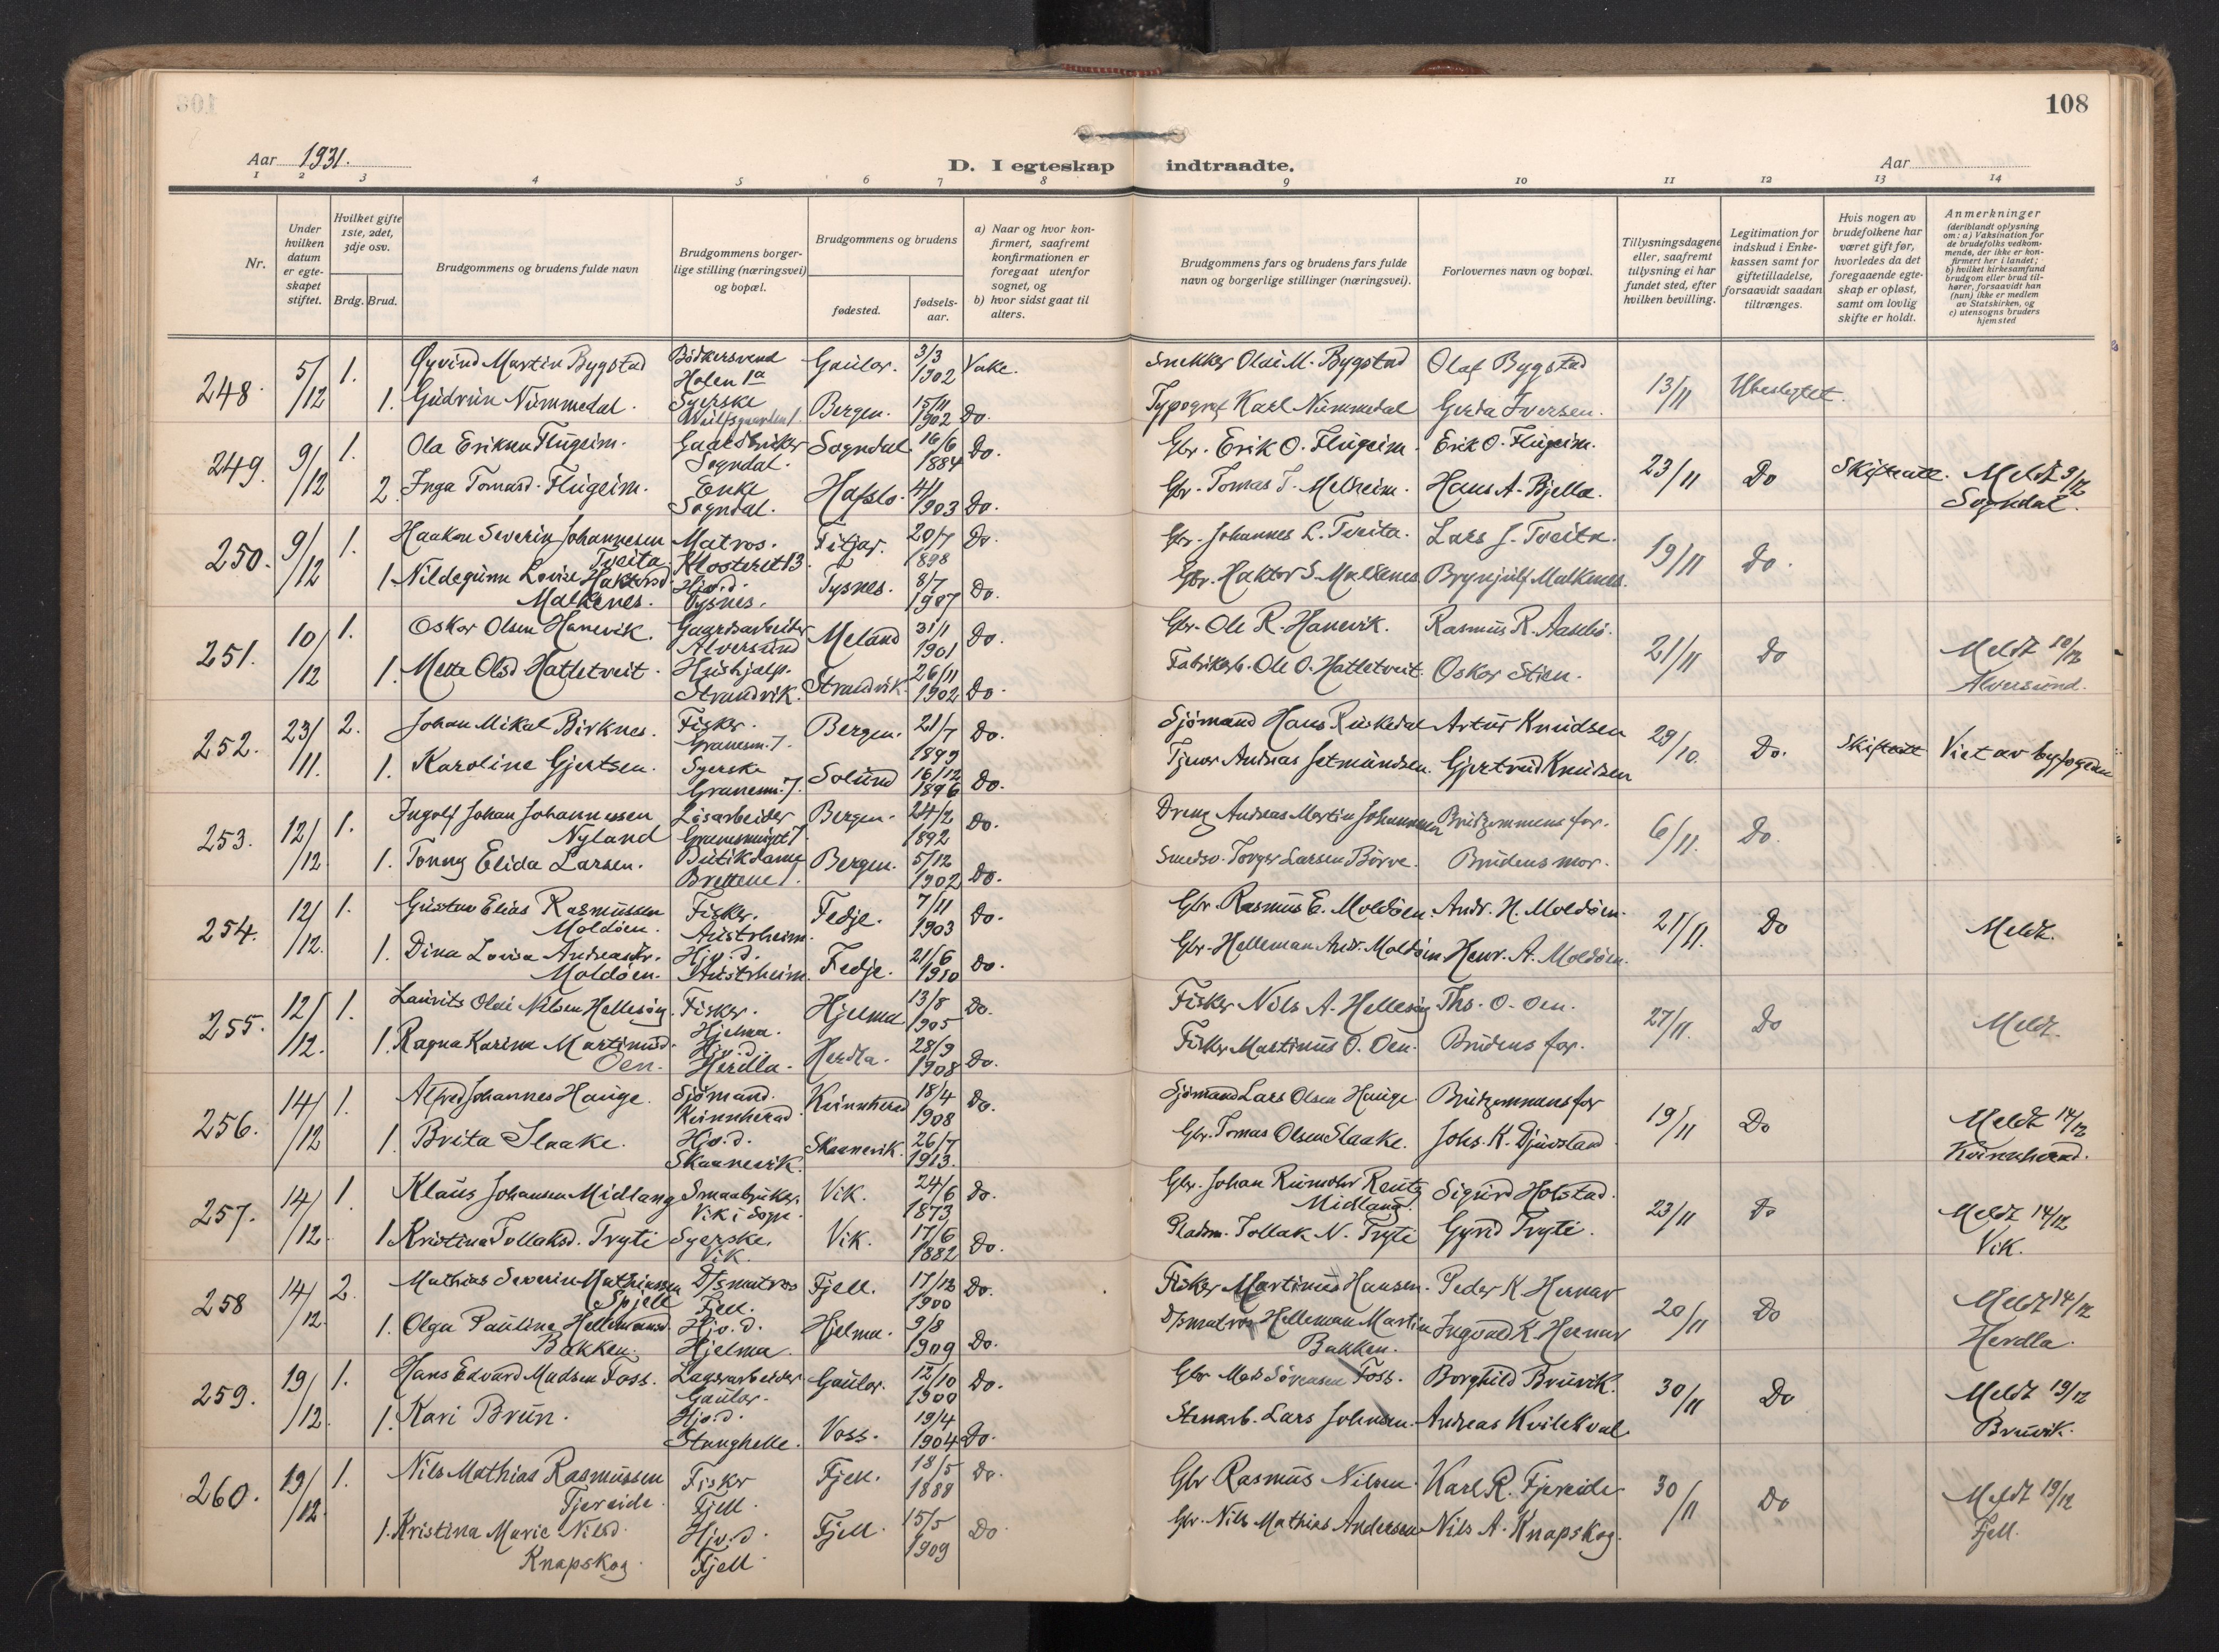 108
Aar 1931.
D. I egteskap indtraadte.
Aar
1 2 3 4 5 6 7 8 9 10 11 12 13 14
Nr.
Under hvilken datum er egteskapet stiftet.
Hvilket gifte 1ste, 2det, 3dje osv.
Brdg. Brud.
Brudgommens og brudens fulde navn
Brudgommens borgerlige stilling (næringsvei) og bopæl.
Brudgommens og brudens
fødested.
fødselsaar.
a) Naar og hvor konfirmert, saafremt konfirmationen er foregaat utenfor sognet, og
b) hvor sidst gaat til alters.
Brudgommens fars og brudens fars fulde navn og borgerlige stillinger (næringsvei).
Forlovernes navn og bopæl.
Tillysningsdagene eller, saafremt tillysning ei har fundet sted, efter hvilken bevilling.
Legitimation for indskud i Enkekassen samt for giftetilladelse, forsaavidt saadan tiltrænges.
Hvis nogen av brudefolkene har været gift før, hvorledes da det foregaaende egteskap er opløst, samt om lovlig skifte er holdt.
Anmerkninger (deriblandt oplysning om: a) Vaksination for de brudefolks vedkommende, der ikke er konfirmert her i landet; b) hvilket kirkesamfund brudgom eller brud tilhører, forsaavidt han (hun) ikke er medlem av Statskirken, og c) utensogns bruders hjemsted
248. 5/12 1. Øyvind Martin Bygstad Bödkersvend Holen 1a Gaular. 3/3 1902 Vake. Snekker Olai M. Bygstad Olaf Bygstad 13/11 Ubeslegtet.
1. Gudrun Nummedal. Syerske Bergen. 15/11 1902 Do. Typograf Karl Nummedal Gerda Iversen.
249. 9/12 1. Ola Eriksen Flugeim. Gaardbruker Sogndal. Sogndal. 16/6 1884 Do. Gbr. Erik O. Flugeim. Erik O. Flugeim. 23/11 Do Skifteatt. Meldt 9/12 Sogndal.
2. Inga Tomasd. Flugeim. Enke Sogndal. Hafslo. 4/1 1903 Do. Gbr. Tomas T. Melheim. Hans A. Bjella.
250. 9/12 1. Haakon Severin Johannesen Tveita. Matros. Klosteret 13. Fitjar. 20/7 1898 Do. Gbr. Johannes L. Tveita. Lars J. Tveita. 19/11 Do.
1. Nildegunn Lovise Haktorsd. Malkenes. Hjv.d. Tysnes. Tysnes. 8/7 1907 Do. Gbr. Haktor S. Malkenes Brynjulf Malkenes.
251. 10/12 1. Oskar Olsen Hanevik. Gaardsarbeider Alversund Meland 31/1 1901 Do. Gbr. Ole R. Hanevik. Rasmus R. Aasebö. 21/11 Do Meldt 10/12 Alversund.
1. Mette Olsd Hattetveit. Hushjelp. Strandvik. Strandvik. 26/11 1902 Do. Fabrikarb. Ole O. Hattetveit. Oskar Stien.
252. 23/11. 2. Johan Mikal Birknes. Fisker. Granesm. 7. Bergen. 21/7 1899 Do. Sjömand Hans Ruskedal Artur Knudsen 29/10. Do. Skifteatt Viet av byfogden
1. Karoline Gjertsen. Syerske Granesm. 7. Solund 16/12 1896 Do. Tjener Andreas Jetmundsen. Gjertrud Knudsen
253. 12/12 1. Ingolf Johan Johannessen Nyland Lösarbeider Bergen. 24/2 1892 Do. Dreng Andreas Martin Johannesen Brudgommens far. 6/11. Do.
1. Tonny Elida Larsen. Butikdame Bergen. 5/12 1902 Do. Smedsv. Torger Larsen Börve. Brudens mor.
254. 12/12. 1. Gustav Elias Rasmussen Moldöen. Fisker. Austrheim. Fedje. 7/11 1903 Do. Gbr. Rasmus E. Moldöen. Andr. H. Moldöen. 21/11. Do Meldt.
1. Dina Lovisa Andreasdr. Moldöen. Hjv.d. Austrheim. Fedje. 21/6 1910 Do. Gbr. Helleman Andr. Moldöen. Henr. A. Moldöen.
255. 12/12. 1. Laurits Olai Nilsen Hellesöy. Fisker. Hjelma. Hjelma 13/8 1905 Do. Fisker Nils A. Hellesöy Ths. O. Oen. 27/11. Do Meldt.
1. Ragna Karine Martinusd. Oen. Hjv.d. Herdla. Herdla. 28/9 1908 Do. Fisker Martinus O. Oen. Brudens far.
256. 14/12 1. Alfred Johannes Hauge. Sjömand. Kvinnherad. Kvinnherad 18/4 1908 Do. Sjömand Lars Olsen Hauge Brudgommens far 19/11 Do Meldt 14/12 Kvinnherad.
1. Brita Slaake. Hjv.d. Skaanevik. Skaanevik. 26/7 1913. Gbr. Tomas Olsen Slaake. Johs. K. Djuvsland
257. 14/12. 1. Klaus Johansen Midlang Smaabruker. Vik i Sogn. Vik. 24/6 1873 Do. Gbr. Johan Rumohr Reutz Midlang. Sigurd Holstad. 23/11 Do Meldt 14/12 Vik.
1. Kristina Tollaksd. Tryti Syerske. Vik. Vik. 17/6 1882 Do. Pladsm. Tollak N. Tryti Gyrid Tryti.
258 14/12. 2. Mathias Severin Mathiassen Spjell D/smatros Fjell. Fjell. 17/12 1900 Do. Fisker Martinus Hansen. Peder K. Hernar 20/11 Do Meldt 14/12 Herdla.
1. Olga Pauline Hellemansd. Bakken. Hjv.d. Hjelma. Hjelma. 9/8 1909 Do. D/smatros Helleman Martin Bakken. Ingvald K. Hernar
259. 19/12. 1. Hans Edvard Madsen Foss. Lagerarbeider Gaular. Gaular. 12/10 1900 Do. Gbr Mads Sörensen Foss. Borghild Bruvik. 30/11 Do Meldt 19/12 Bruvik.
1. Kari Brun. Hjv.d. Stanghelle. Voss. 19/4 1904 Do. Stenarb. Lars Johnsen. Andreas Kvilekval
260. 19/12. 1. Nils Mathias Rasmussen Fjereide. Fisker Fjell. Fjell. 18/5 1888 Do. Gbr Rasmus Nilsen. Karl R. Fjereide 30/11 Do Meldt 19/12 Fjell.
1. Kristina Marie Nilsd. Knapskog. Hjv.d. Fjell Fjell. 15/5 1909 Do Gbr. Nils Mathias Andersen Nils A. Knapskog.